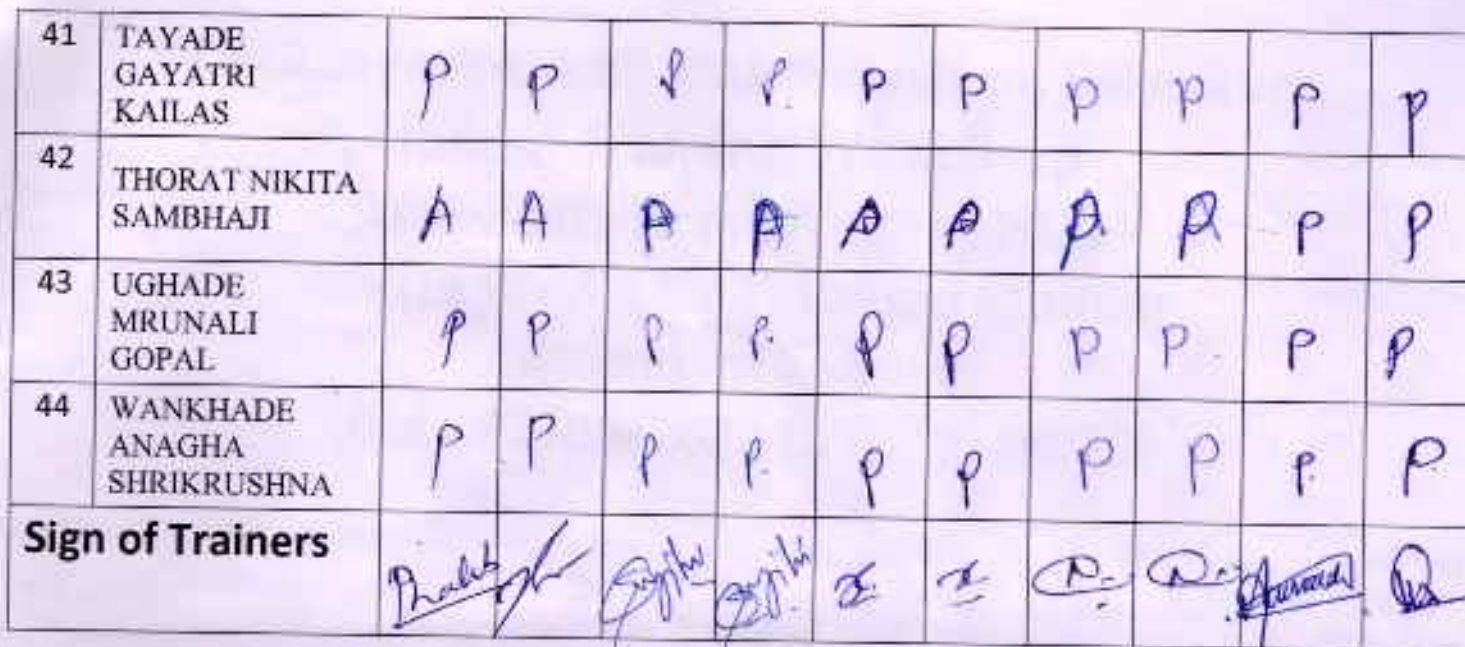 41 TAYADE
GAYATRI
KAILAS
P P P P. P P P P P P
42 THORAT NIKITA
SAMBHAJI
A A A A A A P P
43 UGHADE
MRUNALI
GOPAL
P P P P. P P P P. P P
44 WANKHADE
ANAGHA
SHRIKRUSHNA
P P P P. P P P P P. P
Sign of Trainers